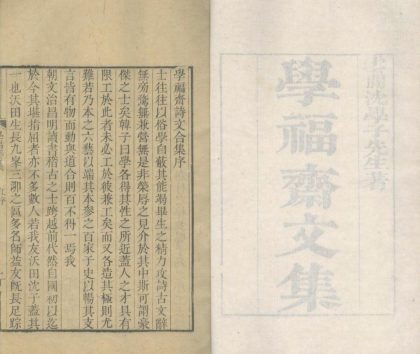 華亭沈學子先生著
學福齋文集
學福齋詩文合集序
士往往以俗學自蔽其能竭畢生之精力攻詩古文辭
無旁騖無兼營無是非榮辱之見介於其中斯可謂豪
傑之士矣韓子曰學各得其性之所近蓋人之才具有
限工於此者未必工於彼兼工矣而又各造其極則尤
難若乃本之六藝以端其本參之百家子史以暢其支
言皆有物而動與道合則百不得一焉我
朝文治昌明詩書稽古之士跨越前代然自國初以迄
於今其堪指屈者亦不多數人若我友沃田沈子蓋其
一也沃田生長九峯三泖之區多名師益友旣長足踪